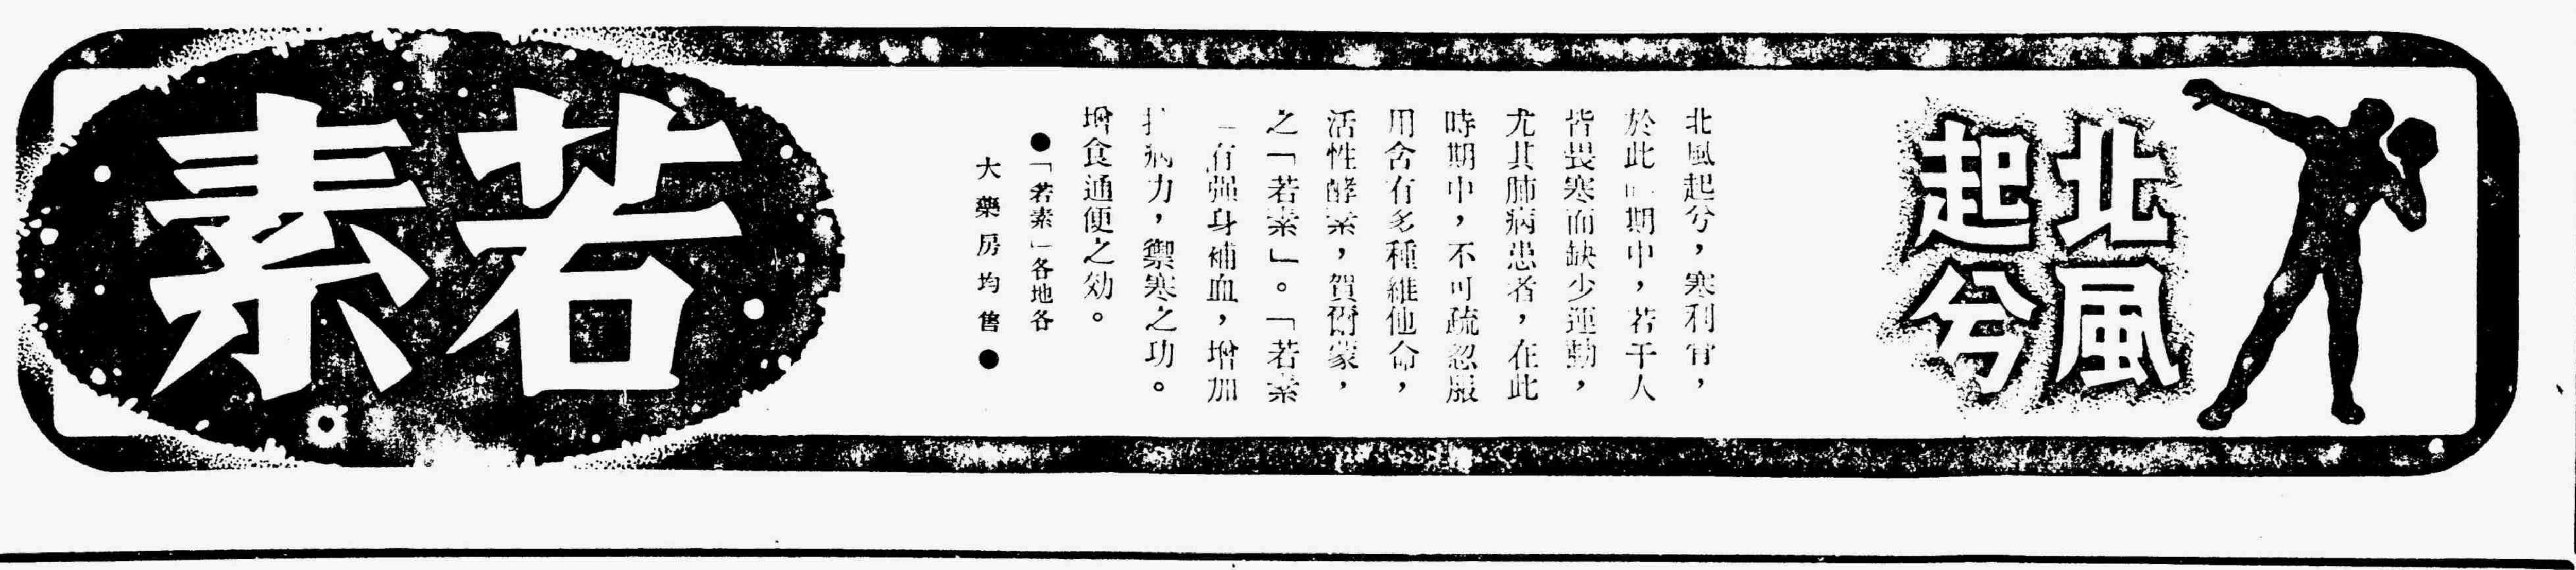 北風
起兮
北風起兮，寒利骨，
於此時期中，若干人
皆畏寒而缺少運動，
尤其肺病患者，在此
時期中，不可疏忽服
用含有多種維他命，
活性酵素，賀爾蒙，
之「若素」。「若素
有强身補血，增加
抗病力，禦寒之功。
增食通便之効。
●「若素」各地各
大藥房均售●
若素